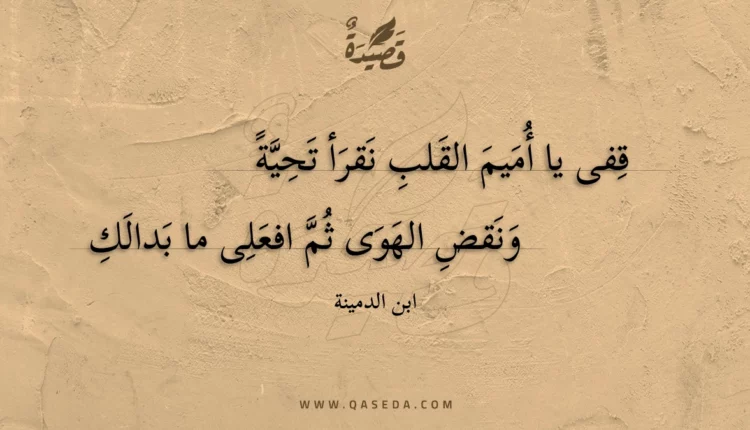 قَصِيدَةٌ
قِفى يا أُمَيمَ القَلبِ نَقرَأ تَحِيَّةً
وَنَقضِ الهَوَى ثُمَّ افعَلِى ما بَدالَكِ
ابن الدمينة
WWW.QASEDA.COM